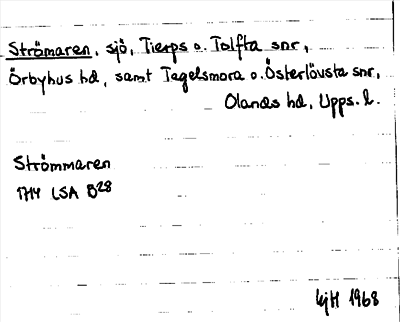 Strömaren, sjö, Tierps o. Tolfta snr,
Örbyhus hd, samt Tegelsmora o. Österlövsta snr,
Olands hd, Upps. l.
Strömmaren
1714 LSA B28
LjH 1968